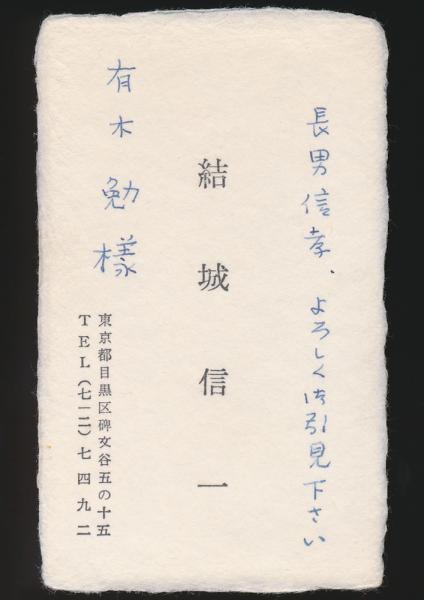 長男信孝、よろしく御引見下さい
結城信一
有木勉様
東京都目黒区碑文谷五の十五
TEL(七一二)七四九二